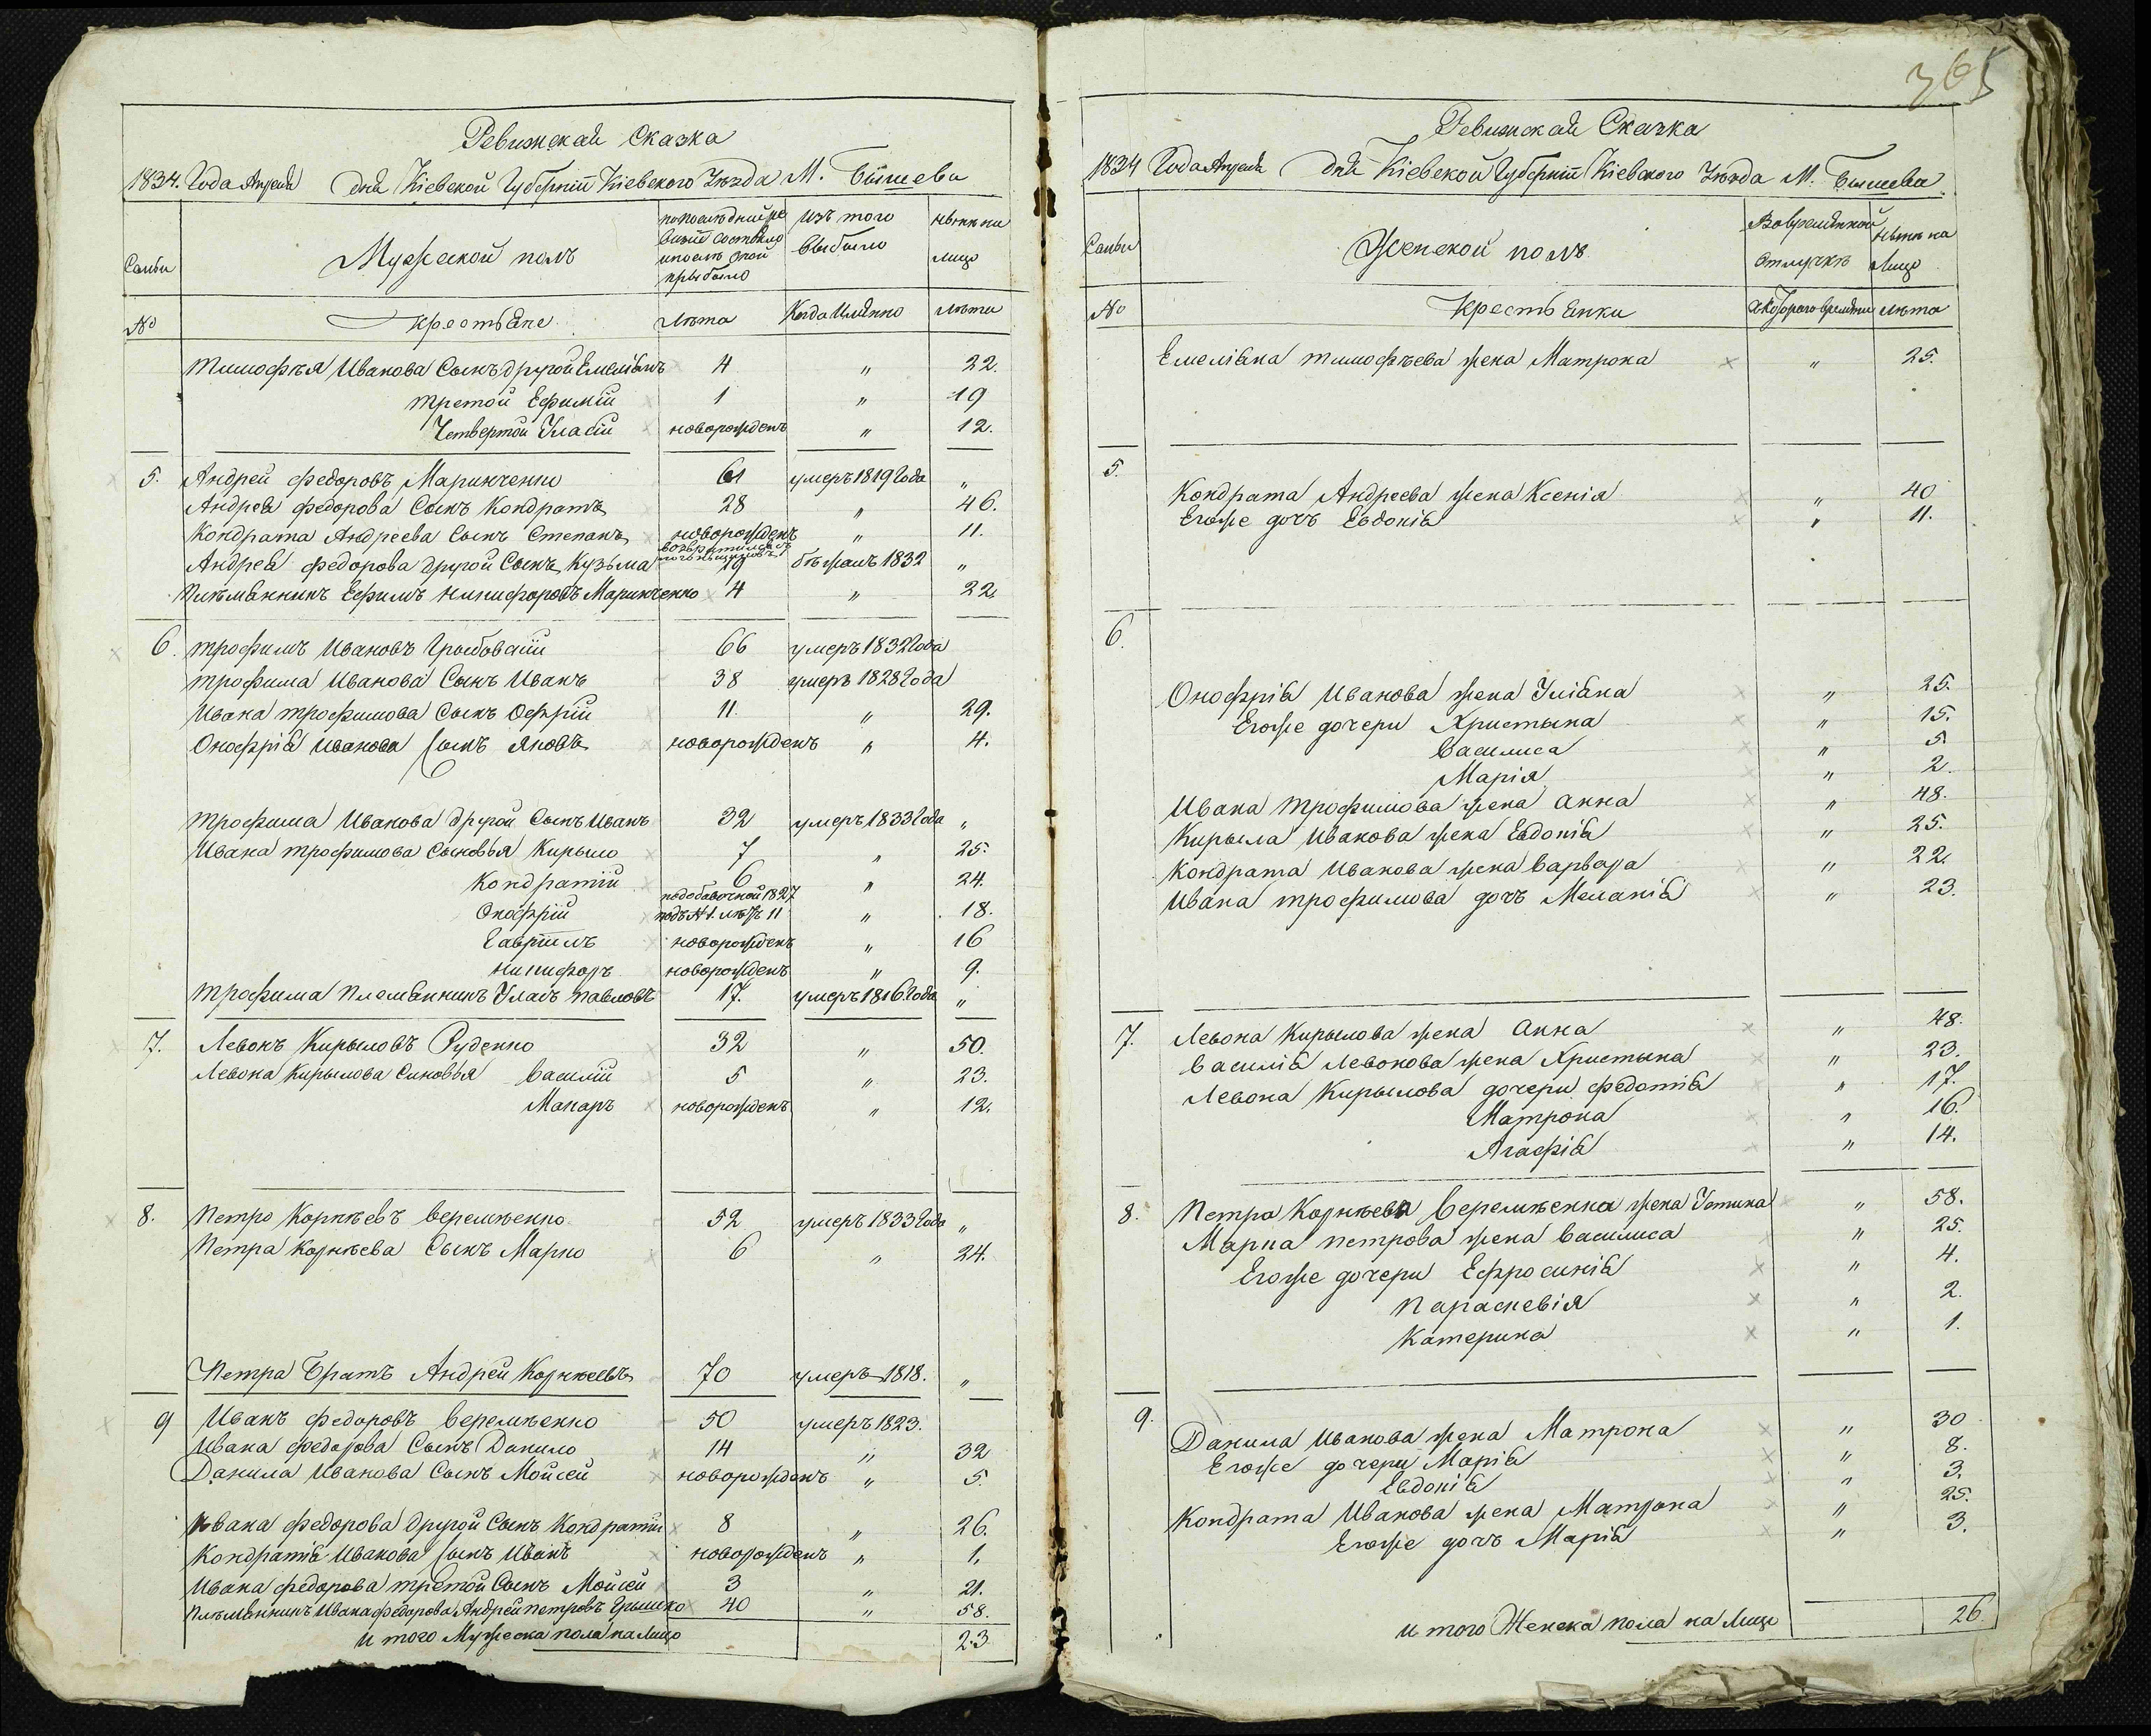 Ревижская Сказка
1834. Года Апреля дня Кіевской Губерніи Кіевского Уезда М. Бышева
Самьи
Мужеской полъ
попоследней ре
визіи состояло
ипосле оной
прыбыло
Изъ того
выбыло
ныне на
лицо
№
крестьяне
лета
Когда Имянно
лета
Тимофея Иванова Сынъ другой Емеліянъ 4 " 22.
третой Ефимій 1 " 19
Четвертой Уласій новорожденъ " 12.
5. Андрей федоровъ Маринченко 61 умеръ 1819 Года "
Андрея федорова Сынъ Кондратъ 28 " 46.
Кондрата Андреева Сынъ Степанъ новорожденъ " 11.
Андрея федорова другой Сынъ Кузьма 19 бежалъ 1832 "
Племянникъ Ефимъ Никифоровъ Маринченко 4 " 22.
6. Трофимъ Ивановъ 66 умеръ 1832 Года
Трофима Иванова Сынъ Иванъ 38 умеръ 1828 Года
Ивана Трофимова Сынъ Офрій 11. " 29.
Онофрія Иванова Сынъ Яковъ новорожденъ " 4.
Трофима Иванова другой Сынъ Иванъ 32 умеръ 1833 Года "
Ивана Трофимова Сыновья Кирыло 7 " 25.
Кондратій 6 " 24.
подобавочной 1827
Онофрій подъ № 1. летъ 11 " 18.
Гавріилъ новорожденъ " 16
Никифоръ новорожденъ " 9.
Трофима Племянникъ Уласъ Павловъ 17. умеръ 1816 Года "
7. Левонъ Кирыловъ Руденко 32 " 50.
Левона Кирылова Синовья Василій 5 " 23.
Макаръ новорожденъ " 12.
8. Петро Корнеевъ Веремеенко 52 умеръ 1833 Года "
Петра Корнеева Сынъ Марко 6 " 24.
Петра Братъ Андрей Корнеевъ 70 умеръ 1818. "
9 Иванъ федоровъ Веремеенко 50 умеръ 1823.
Ивана федорова Сынъ Данило 14 " 32
Данила Иванова Сынъ Мойсей новорожденъ " 5.
Ивана федорова другой Сынъ Кондратій 8 " 26.
Кондратія Иванова Сынъ Иванъ новорожденъ " 1.
Ивана федорова третой Сынъ Мойсей 3 " 21.
Племянникъ Ивана федорова Андрей Петровъ Грышко 40 " 58.
и того Мужеска пола на Лицо 23
365
Ревижская Сказка
1834 Года Апреля дня Кіевской Губерніи Кіевского Уезда М. Бышева
Самьи
Женской полъ
Вовременной
отлучке
ныне на
Лицо
№
крестьянки
скоторого времени
лета
Емеліяна Тимофеева жена Матрона " 25.
5.
Кондрата Андреева жена Ксенія " 40
Егоже дочъ Евдокія " 11.
6.
Онофрія Иванова жена Уліяна " 25.
Егоже дочери Христына " 15.
Василиса " 5.
Марія " 2.
Ивана Трофимова жена Анна " 48.
Кирыла Иванова жена Евдокія " 25.
Кондрата Иванова жена Варвара " 22.
Ивана Трофимова дочъ Меланія " 23.
7. Левона Кирылова жена Анна " 48.
Василія Левонова жена Христына " 23.
Левона Кирылова дочери федотія " 17.
Матрона " 16.
Агафія " 14.
8. Петра Корнеева Веремеенка жена Устина " 58.
Марка Петрова жена Василиса " 25.
Егоже дочери Ефросинія " 4.
Параскевія " 2.
Катерина " 1.
9. Данила Иванова жена Матрона " 30
Егоже дочери Марія " 8.
Евдокія " 3.
Кондрата Иванова жена Матрона " 25.
Егоже дочъ Марія " 3.
и того Женска пола на Лицо 26